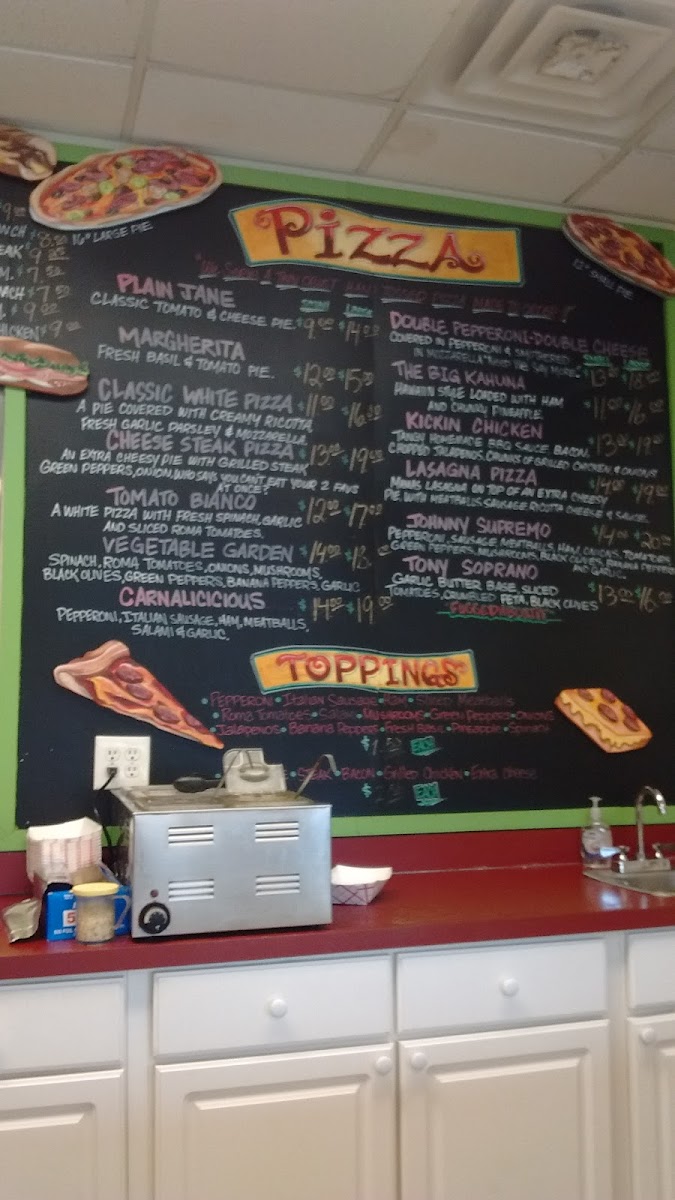 $9.00
$8.50
$9.00
$7.50
$7.50
$9.00
CHICKEN $9.00
16" LARGE PIE
PIZZA
12" SMALL PIE
SMALL LARGE
PLAIN JANE
CLASSIC TOMATO & CHEESE PIE. $9.00 $14.00
MARGHERITA
FRESH BASIL & TOMATO PIE. $12.00 $15.00
CLASSIC WHITE PIZZA $11.00 $16.00
A PIE COVERED WITH CREAMY RICOTTA,
FRESH GARLIC PARSLEY & MOZZARELLA.
CHEESE STEAK PIZZA $13.00 $19.00
AN EXTRA CHEESY PIE WITH GRILLED STEAK
GREEN PEPPERS, ONION, WHO SAYS YOU CAN'T EAT YOUR 2 FAVS
AT ONCE?
TOMATO BIANCO $12.00 $17.00
A WHITE PIZZA WITH FRESH SPINACH, GARLIC
AND SLICED ROMA TOMATOES.
VEGETABLE GARDEN $14.00 $18.
SPINACH, ROMA TOMATOES, ONIONS, MUSHROOMS,
BLACK OLIVES, GREEN PEPPERS, BANANA PEPPERS, GARLIC
CARNALICICIOUS $14.00 $19.00
PEPPERONI, ITALIAN SAUSAGE, HAM, MEATBALLS,
SALAMI & GARLIC.
DOUBLE PEPPERONI-DOUBLE CHEESE
COVERED IN PEPPERONI & SMOTHERED
IN MOZZARELLA SAY MORE $13.00 $18.00
THE BIG KAHUNA
HAWAIIN STYLE LOADED WITH HAM
AND CHUNKY PINEAPPLE. $11.00 $16.
KICKIN CHICKEN
TANGY HOMEMADE BBQ SAUCE, BACON, $13.00 $19.00
CHOPPED JALAPENOS, CHUNKS OF GRILLED CHICKEN & ONIONS
LASAGNA PIZZA
MAMAS LASAGNA ON TOP OF AN EXTRA CHEESY $14.00 $19.00
PIE WITH MEATBALLS SAUSAGE RICOTTA CHEESE & SAUCE.
JOHNNY SUPREMO $14.00 $20.00
PEPPERONI, SAUSAGE, MEATBALLS, HAM, ONIONS, TOMATOES,
GREEN PEPPERS, MUSHROOMS, BLACK OLIVES, BANANA PEPPERS
AND GARLIC.
TONY SOPRANO $13.00 $16.00
GARLIC BUTTER BASE, SLICED
TOMATOES, CRUMBLED FETA, BLACK OLIVES
TOPPINGS
• PEPPERONI • Italian Sausage • Ham • Sliced Meatballs
• Roma Tomatoes • Salami • MUSHROOMS • GREEN PEPPERS • ONIONS
• Jalapenos • Banana Peppers • FRESH BASIL • Pineapple • Spinach
$1.50 EACH
STEAK • BACON • Grilled Chicken • Extra Cheese
EACH